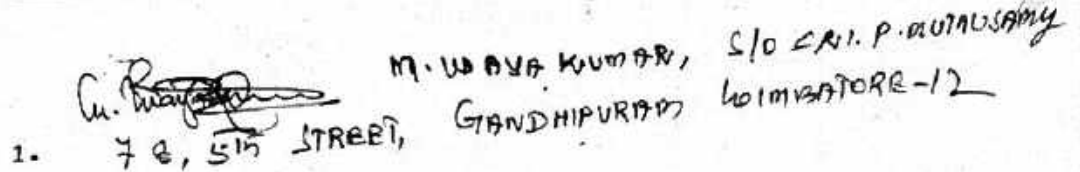 M. UDAYA KUMAR, S/O SRI. P. MUTHUSAMY
1. 78, 5th STREET, GANDHIPURAM COIMBATORE-12